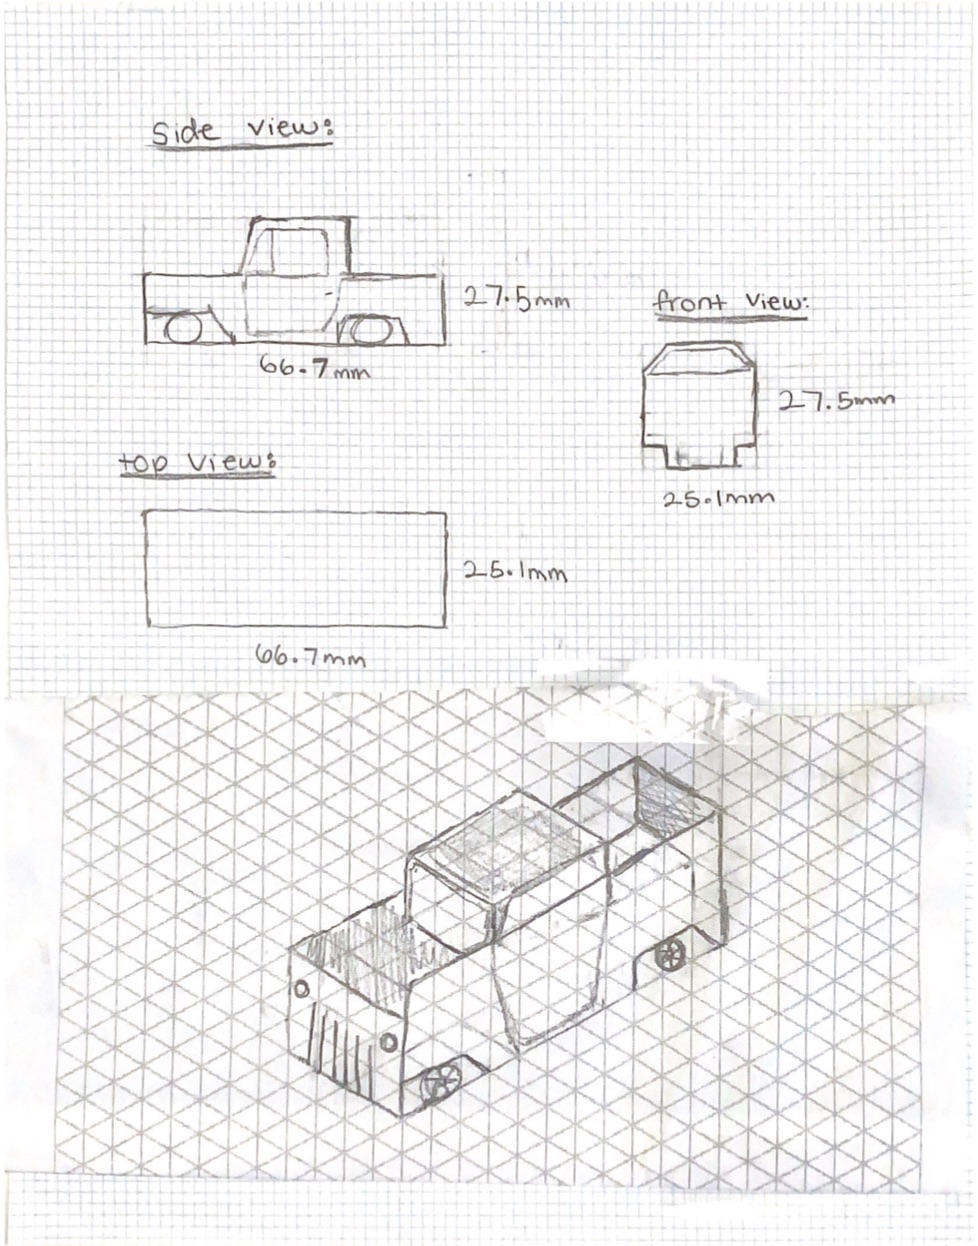 Side view:
27.5mm
66.7mm
front view:
27.5mm
25.1mm
top view:
25.1mm
66.7mm